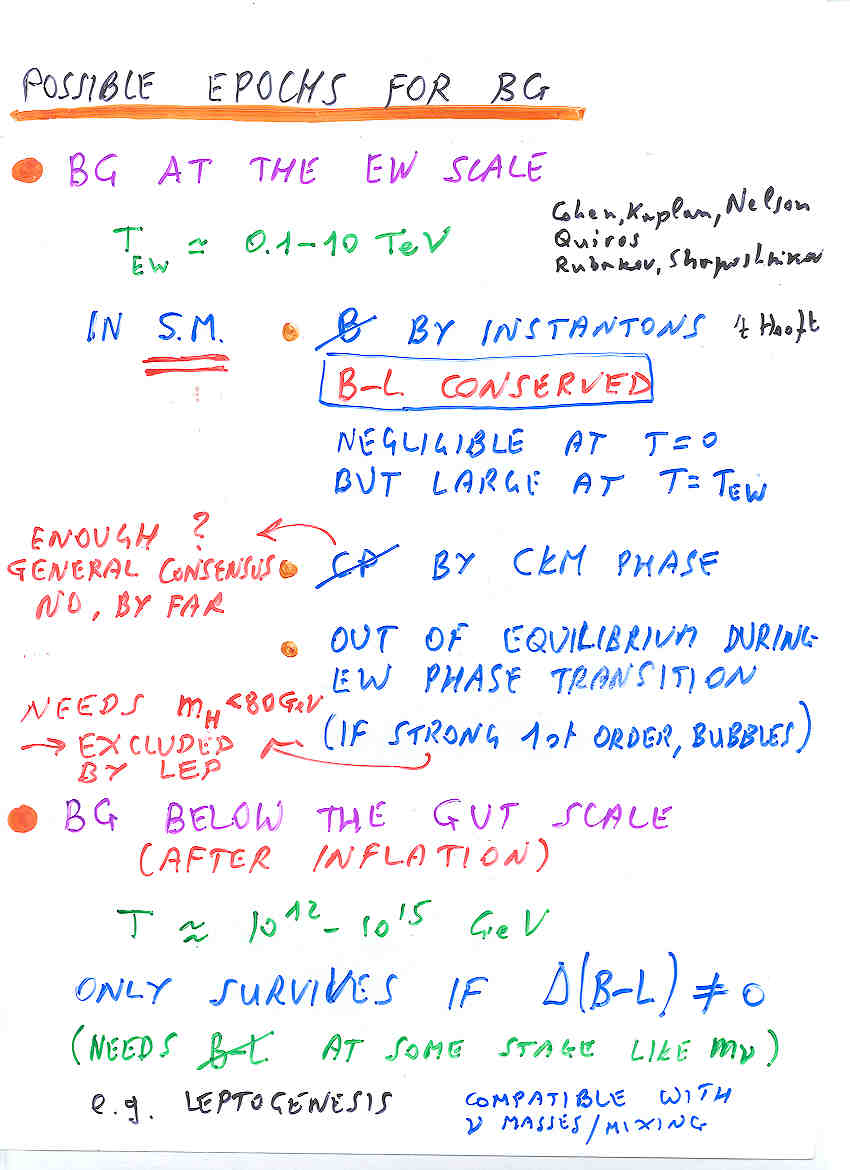 POSSIBLE EPOCHS FOR BG
BG AT THE EW SCALE
T_EW ≃ 0.1–10 TeV
Cohen, Kaplan, Nelson
Quiros
Rubakov, Shaposhnikov
IN S.M.
B̸ BY INSTANTONS 't Hooft
B–L CONSERVED
NEGLIGIBLE AT T=0
BUT LARGE AT T=T_EW
ENOUGH ?
GENERAL CONSENSUS
NO, BY FAR
C̸P̸ BY CKM PHASE
OUT OF EQUILIBRIUM DURING
EW PHASE TRANSITION
(IF STRONG 1st ORDER, BUBBLES)
NEEDS m_H < 80 GeV
→ EXCLUDED
BY LEP
BG BELOW THE GUT SCALE
(AFTER INFLATION)
T ≈ 10^12 – 10^15 GeV
ONLY SURVIVES IF Δ(B–L) ≠ 0
(NEEDS B̸–̸L̸ AT SOME STAGE LIKE mν)
e.g. LEPTOGENESIS
COMPATIBLE WITH
ν MASSES/MIXING